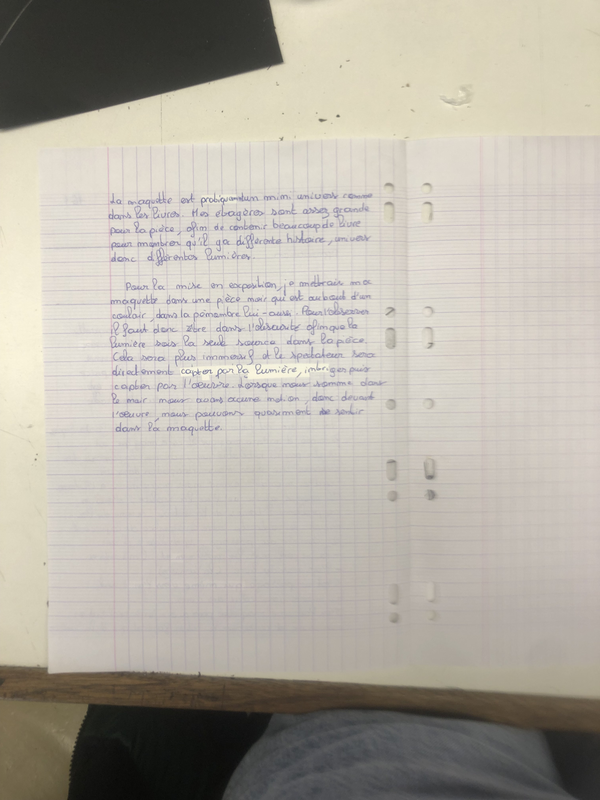 La maquette est pratiquement un mini univers comme
dans les livres. Mes étagères sont assez grande
pour la pièce, afin de contenir beaucoup de livre
pour montrer qu'il y a différente histoire, univers
donc différentes lumières.
Pour la mise en exposition, je mettrais ma
maquette dans une pièce noir qui est au bout d'un
couloir, dans la pénombre lui-aussi. Pour l'observer
il faut donc être dans l'obscurité afin que la
lumière sois la seul source dans la pièce.
Cela sera plus immersif et le spectateur sera
directement capter par la lumière, intriguer puis
capter par l'œuvre. Lorsque nous somme dans
le noir nous avons aucune notion, donc devant
l'œuvre, nous pouvons quasiment se sentir
dans la maquette.